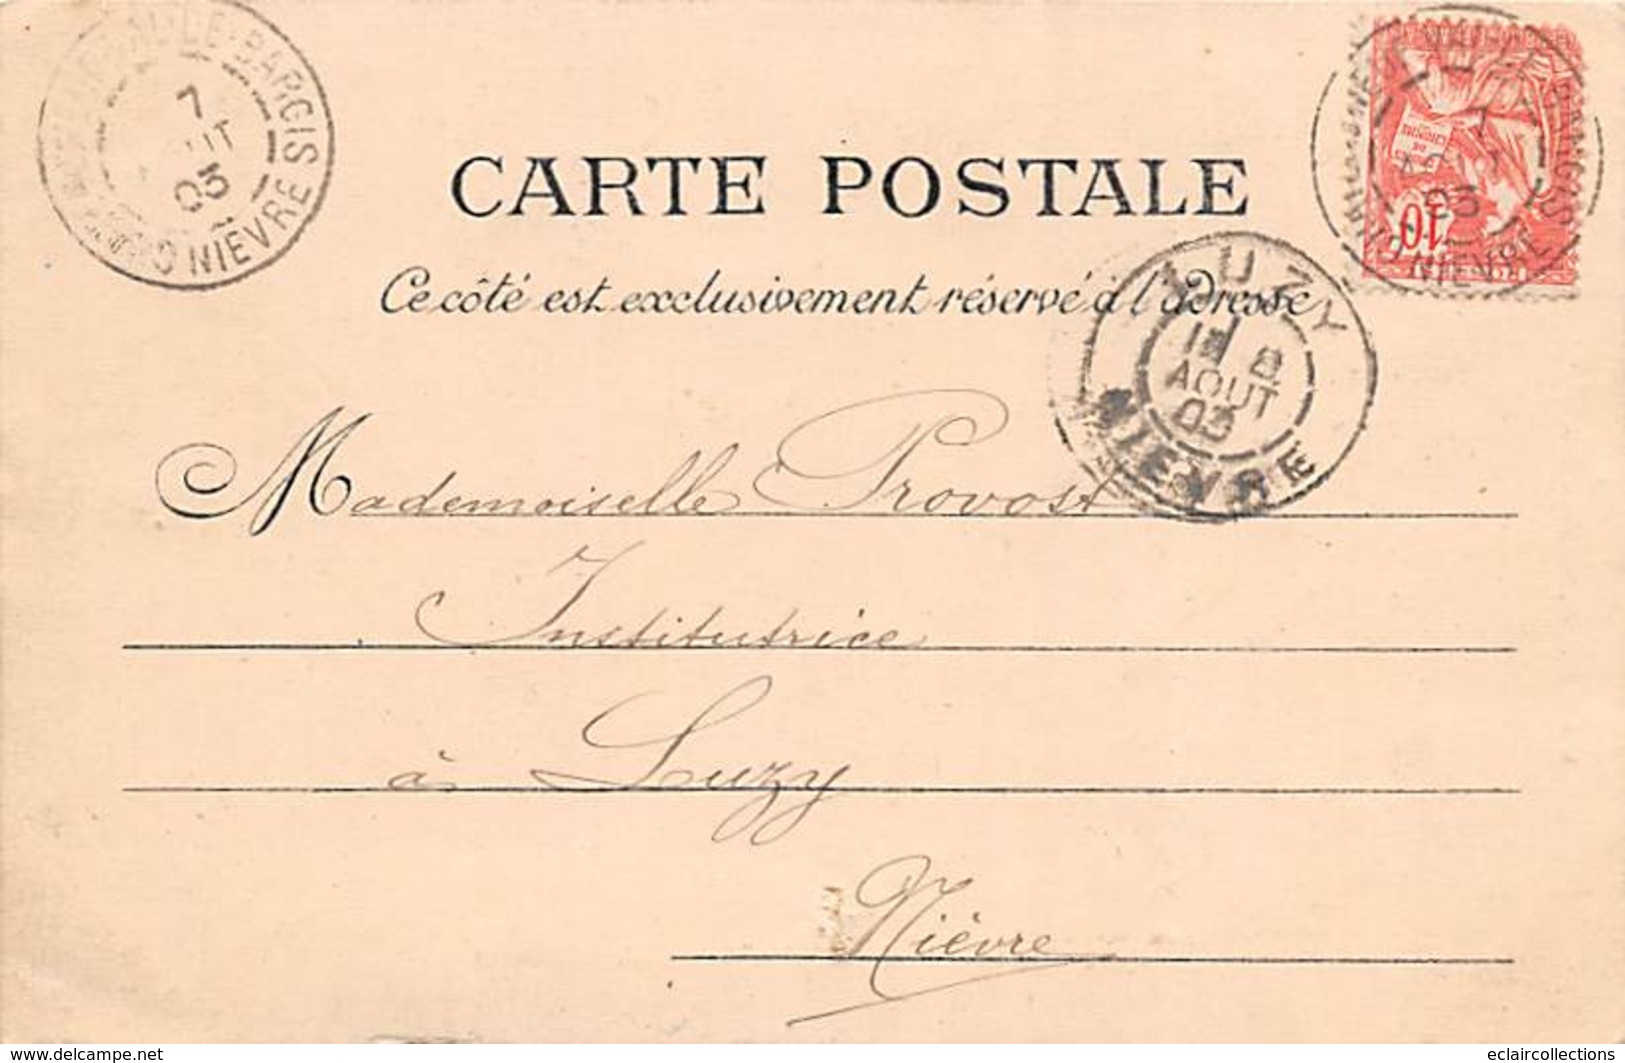 VAL-DE-BARGIS
7
05
NIÈVRE
10
7
NIEVRE
CARTE POSTALE
Ce côté est exclusivement réservé à l'adresse
LUZY
8
AOUT
03
NIEVRE
Mademoiselle Provost
Institutrice
à Luzy
Nièvre
www.delcampe.net
eclaircollections